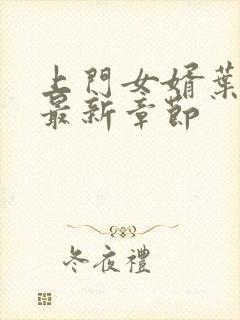 上門女婿葉
最新章節
冬夜禮